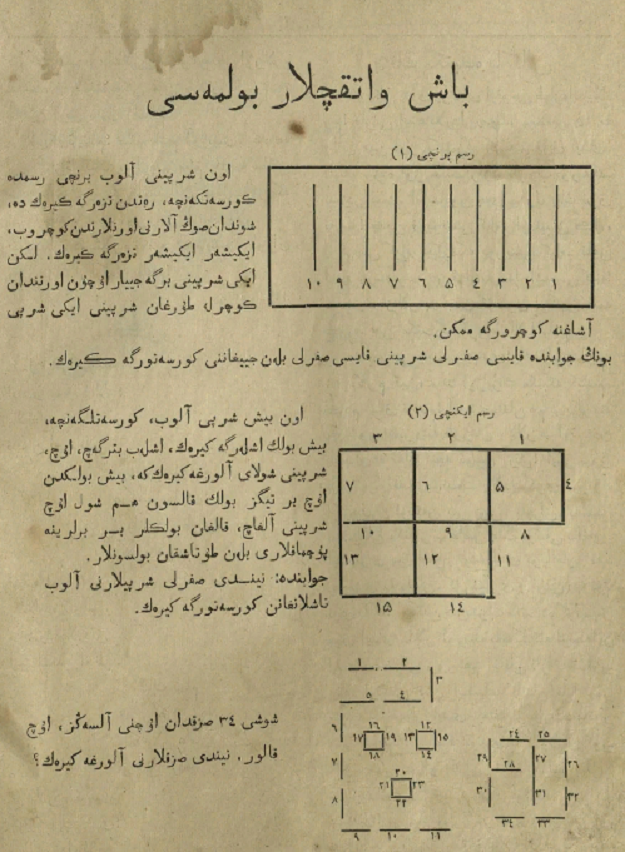 باش واتقچلار بولمەسی
رسم برنچی (۱)
اون شرپینی آلوب برنچی رسمدە
کورسەتکەنچە، رەتدن تزەرگە کیرەك دە،
شوندان صوڭ آلارنی اورنلارندن کوچروب،
ایکیشەر ایکیشەر تزەرگە کیرەك. لکن
ایکی شرپینی برگە جییار اوچون اورتدان
کوچرلە طورغان شرپینی ایکی شرپی
۱۰ ۹ ۸ ۷ ۶ ۵ ٤ ۳ ۲ ۱
آشاغنە کوچرورگە ممکن.
بونڭ جوابندە قایسی صفرلی شرپینی قایسی صفرلی بلەن جییغاننی کورسەتورگە کیرەك.
رسم ایکنچی (۲)
اون بیش شرپی آلوب، کورسەتلگەنچە،
بیش بولك اشلەرگە کیرەك، اشلەب بترگەچ، اوچ،
شرپینی شولای آلورغە کیرەك کە، بیش بولکدن
اوچ بر تیگز بولك قالسون هەم شول اوچ
شرپینی آلغاچ، قالغان بولکلر بسر برلرینە
پۆچماقلاری بلەن طوتاشقان بولسونلار.
جوابندە: نیندی صفرلی شرپیلارنی آلوب
تاشلانغانن کورسەتورگە کیرەك.
۳ ۲ ۱
۷ ۶ ۵ ٤
۱۰ ۹ ۸
۱۳ ۱۲ ۱۱
۱۵ ۱٤
شوشی ۳٤ صزقدان اوچنی آلسەڭز، اوچ
قالور، نیندی صزقلارنی آلورغە کیرەك؟
۱ ۲
۳
۵ ٤
۶ ۱۶ ۱۲
۱۷ ۱۹ ۱۳ ۱۵
۱۸ ۱٤
۷ ۲۰
۲۱ ۲۳
۸ ۲۲
۹ ۱۰ ۱۱
۲٤ ۲۵
۲۹ ۲۸ ۲۷ ۲۶
۳۰ ۳۱ ۳۲
۳٤ ۳۳